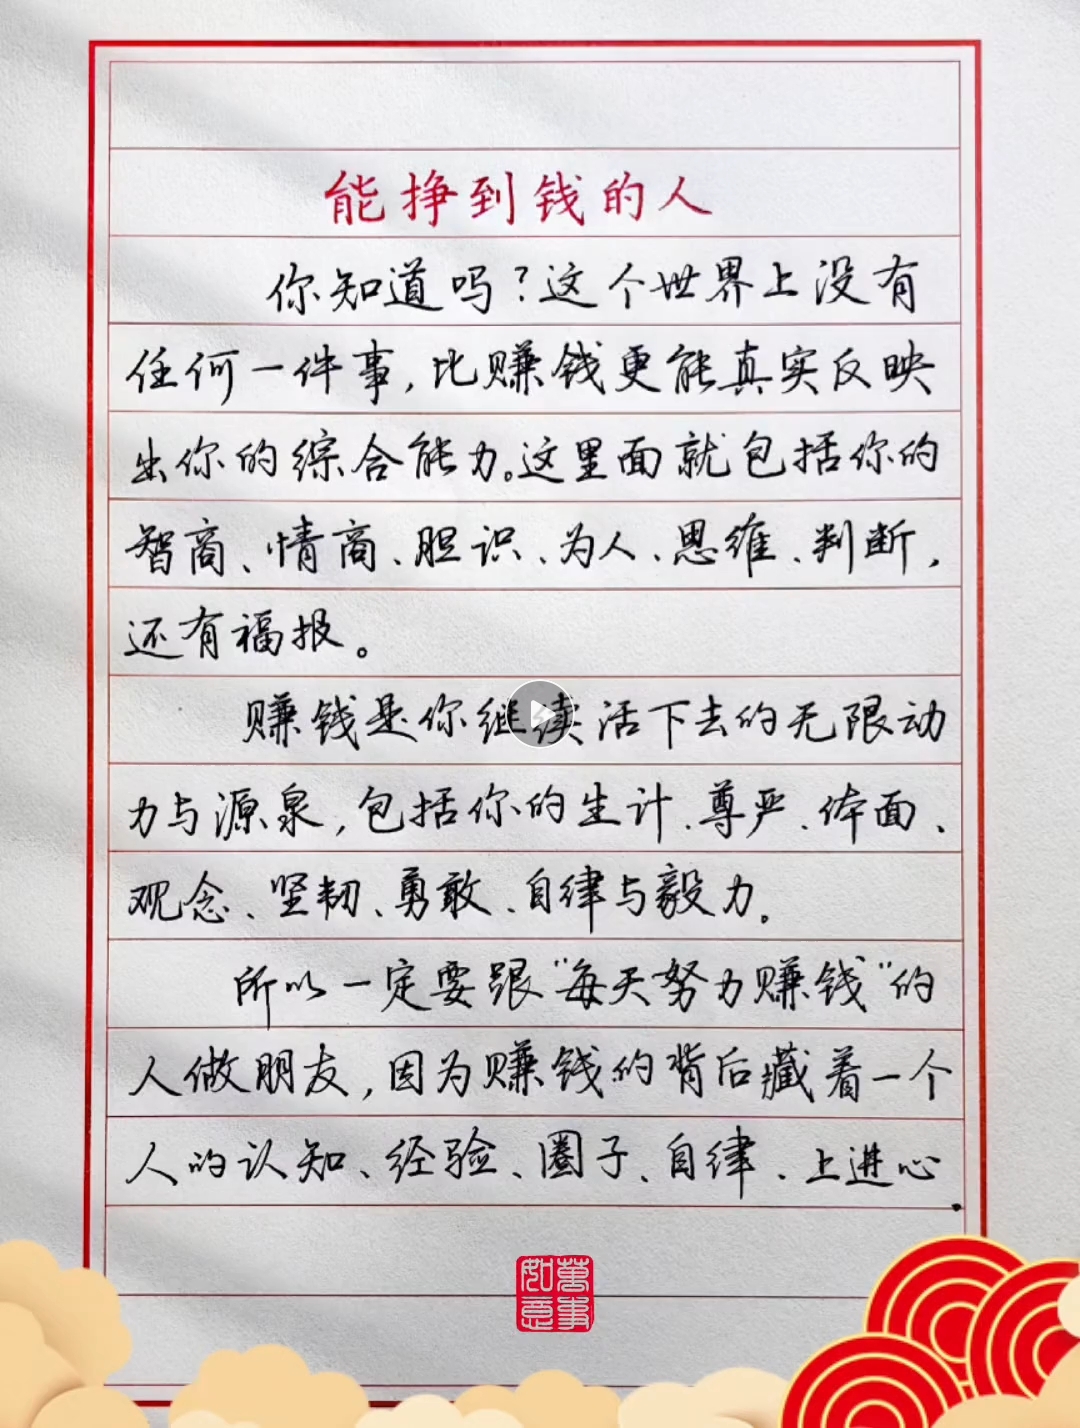 能挣到钱的人
你知道吗?这个世界上没有
任何一件事,比赚钱更能真实反映
出你的综合能力。这里面就包括你的
智商、情商、胆识、为人、思维、判断,
还有福报。
赚钱是你继续活下去的无限动
力与源泉,包括你的生计、尊严、体面、
观念、坚韧、勇敢、自律与毅力。
所以一定要跟“每天努力赚钱”的
人做朋友,因为赚钱的背后藏着一个
人的认知、经验、圈子、自律、上进心.
萬事如意